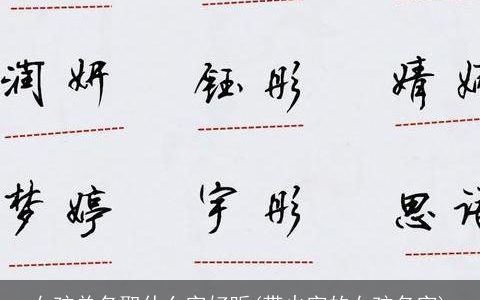 润妍 钰彤 婧
梦婷 宇彤 思语
女孩单名取什么字好听(带火字的女孩名字)